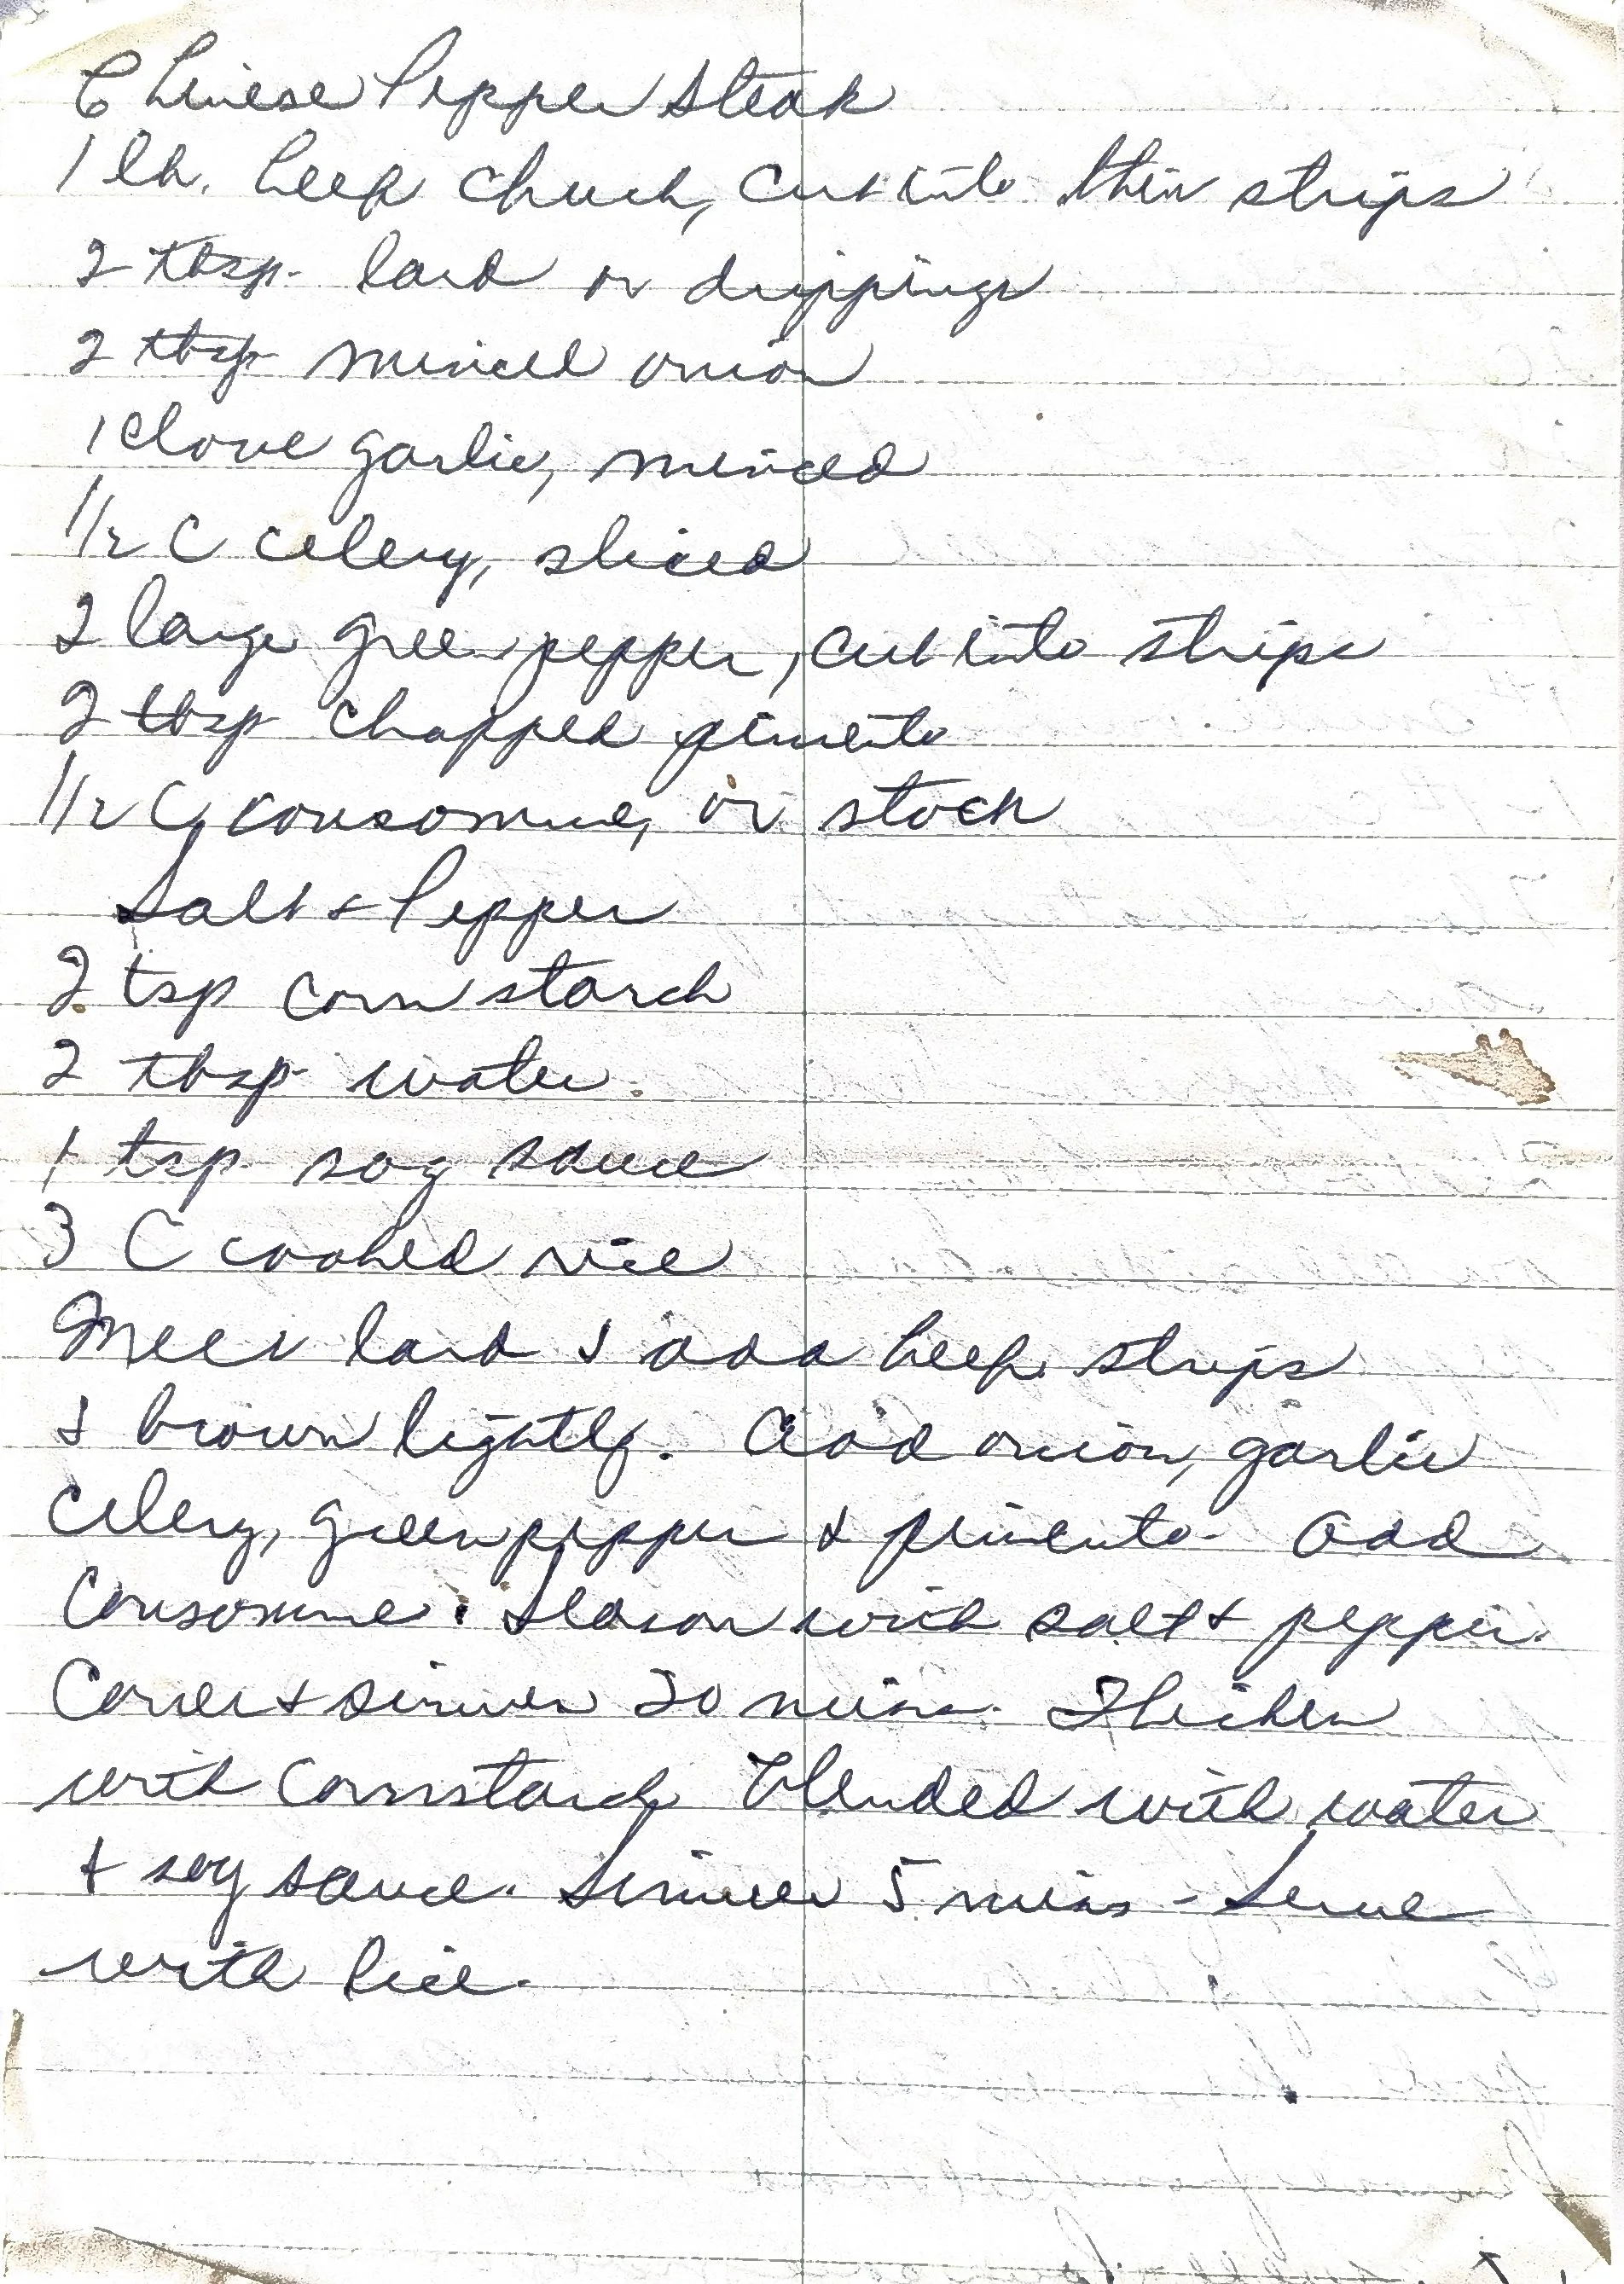 Chinese Pepper Steak
1 lb. beef chuck, cut into thin strips
2 tbsp. lard or drippings
2 tbsp minced onion
1 clove garlic, minced
1/2 C celery, sliced
2 large green pepper, cut into strips
2 tbsp chopped pimento
1/2 C consomme, or stock
Salt & Pepper
2 tsp corn starch
2 tbsp water
1 tsp soy sauce
3 C cooked rice
Melt lard & add beef strips
& brown lightly. Add onion, garlic
Celery, green pepper & pimento - Add
Consomme. Season with salt & pepper.
Cover & simmer 20 mins. Thicken
with Cornstarch blended with water
& soy sauce. Simmer 5 mins - Serve
with Rice.